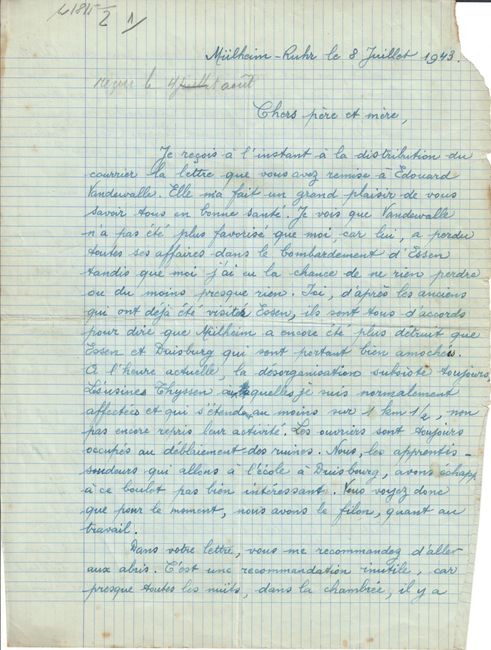 L 1815/2 1/
Mülheim-Ruhr le 8 Juillet 1943.
reçue le 4 juillet août
Chers père et mère,
Je reçois à l'instant à la distribution du
courrier la lettre que vous avez remise à Edouard
Vandewalle. Elle m'a fait un grand plaisir de vous
savoir tous en bonne santé. Je vois que Vandewalle
n'a pas été plus favorisé que moi, car lui, a perdu
toutes ses affaires dans le bombardement d'Essen
tandis que moi j'ai eu la chance de ne rien perdre
ou du moins presque rien. Ici, d'après les anciens
qui ont deja été visiter Essen, ils sont tous d'accords
pour dire que Mülheim a encore été plus détruit que
Essen et Duisburg qui sont portant bien amochées.
A l'heure actuelle, la désorganisation subsiste toujours,
Les usines Thyssen auxquelles je suis normalement
affectée et qui s'étend au moins sur 1 km 1/2, non
pas encore repris leur activité. Les ouvriers sont toujours
occupés au déblaiement des ruines. Nous, les apprentis-
soudeurs qui allons à l'école à Duisbourg, avons échapp
à ce boulot pas bien intéressant. Vous voyez donc
que pour le moment, nous avons le filon, quant au
travail.
Dans votre lettre, vous me recommandez d'aller
aux abris. C'est une recommandation inutile, car
presque toutes les nuits, dans la chambrée, il y a